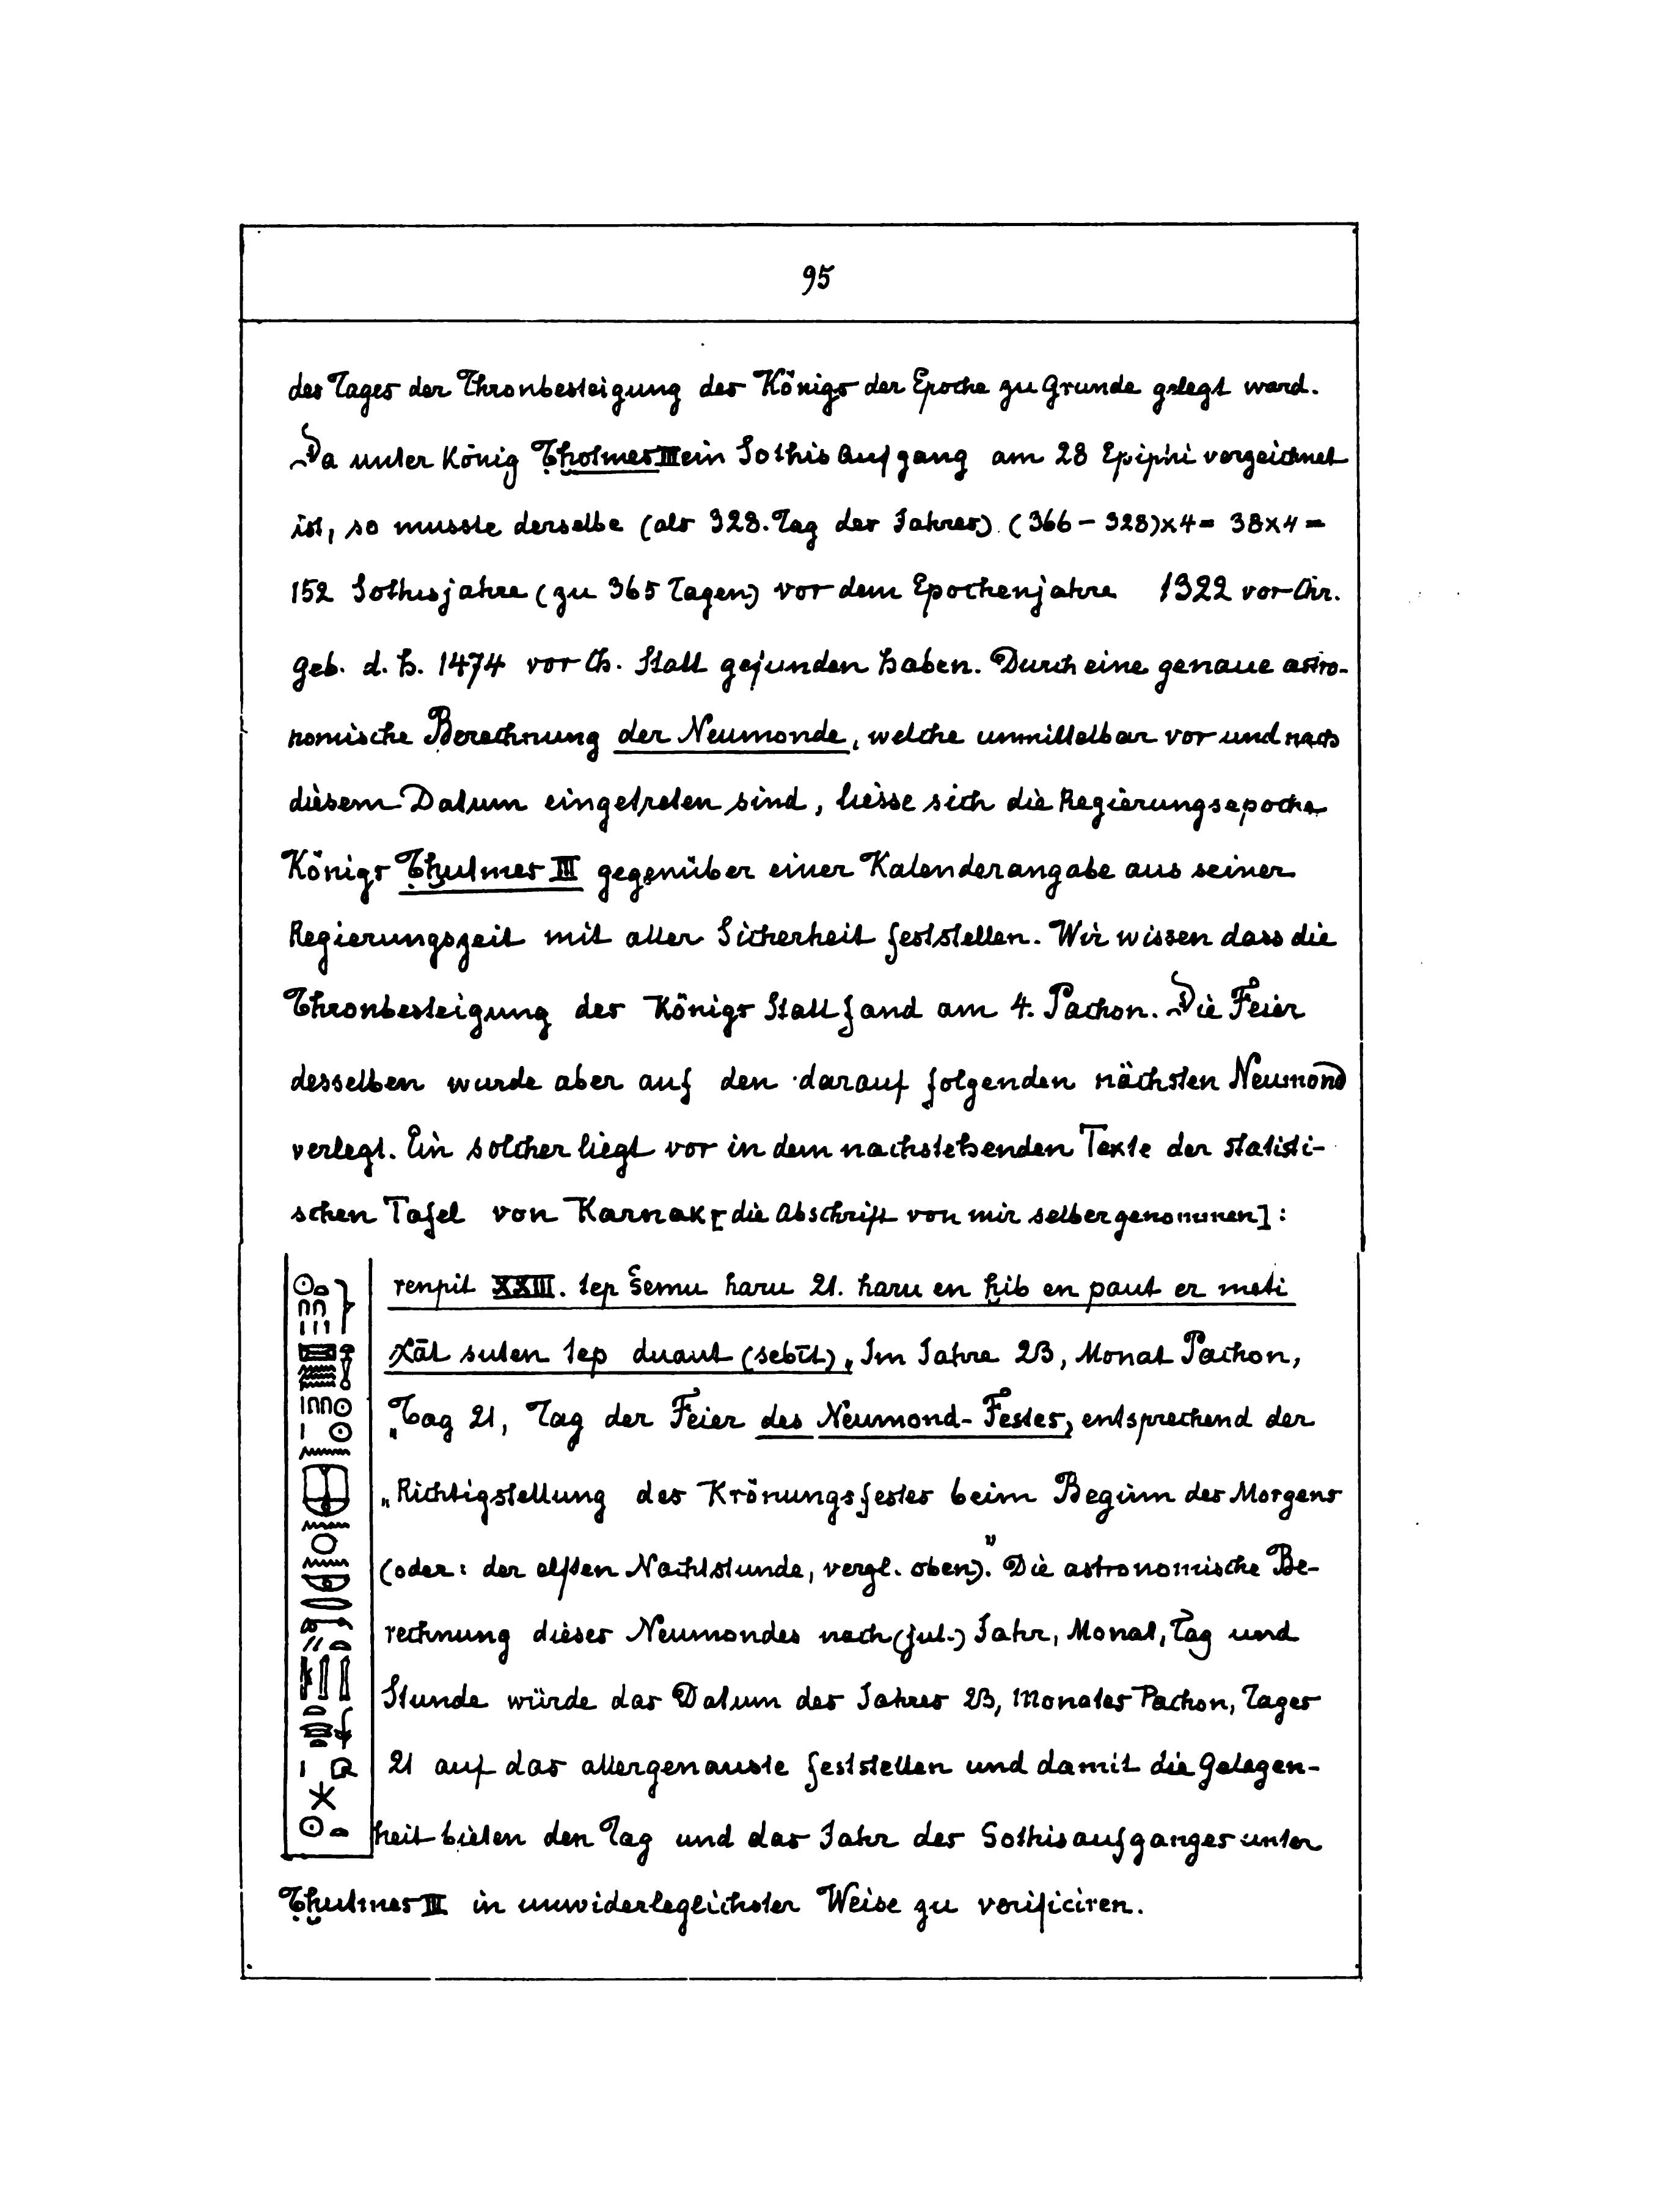 95
des Tages der Thronbesteigung des Königs der Epoche zu Grunde gelegt ward.
Da unter König Ṭḥotmes III ein Sothisaufgang am 28 Epiphi verzeichnet
ist, so musste derselbe (als 328. Tag des Jahres) (366 - 328)x4 = 38x4 =
152 Sothisjahre (zu 365 Tagen) vor dem Epochenjahre 1322 vor Chr.
geb. d. h. 1474 vor Ch. Statt gefunden haben. Durch eine genaue astro-
nomische Berechnung der Neumonde, welche unmittelbar vor und nach
diesem Datum eingetreten sind, liesse sich die Regierungsepoche
Königs Ṭḥutmes III gegenüber einer Kalenderangabe aus seiner
Regierungszeit mit aller Sicherheit feststellen. Wir wissen dass die
Thronbesteigung des Königs Statt fand am 4. Pachon. Die Feier
desselben wurde aber auf den darauf folgenden nächsten Neumond
verlegt. Ein solcher liegt vor in dem nachstehenden Texte der statisti-
schen Tafel von Karnak [die Abschrift von mir selber genommen]:
renpit XXIII. tep šemu haru 21. haru en ḥib en paut er meti
χāt suten tep duaut (sebīt) „Im Jahre 23, Monat Pachon,
„Tag 21, Tag der Feier des Neumond-Festes, entsprechend der
„Richtigstellung des Krönungsfestes beim Beginn des Morgens
(oder: der elften Nachtstunde, vergl. oben)." Die astronomische Be-
rechnung dieses Neumondes nach (jul.) Jahr, Monat, Tag und
Stunde würde das Datum des Jahres 23, Monates Pachon, Tages
21 auf das allergenauste feststellen und damit die Gelegen-
heit bieten den Tag und das Jahr des Sothisaufganges unter
Ṭḥutmes III in unwiderleglichster Weise zu verificiren.